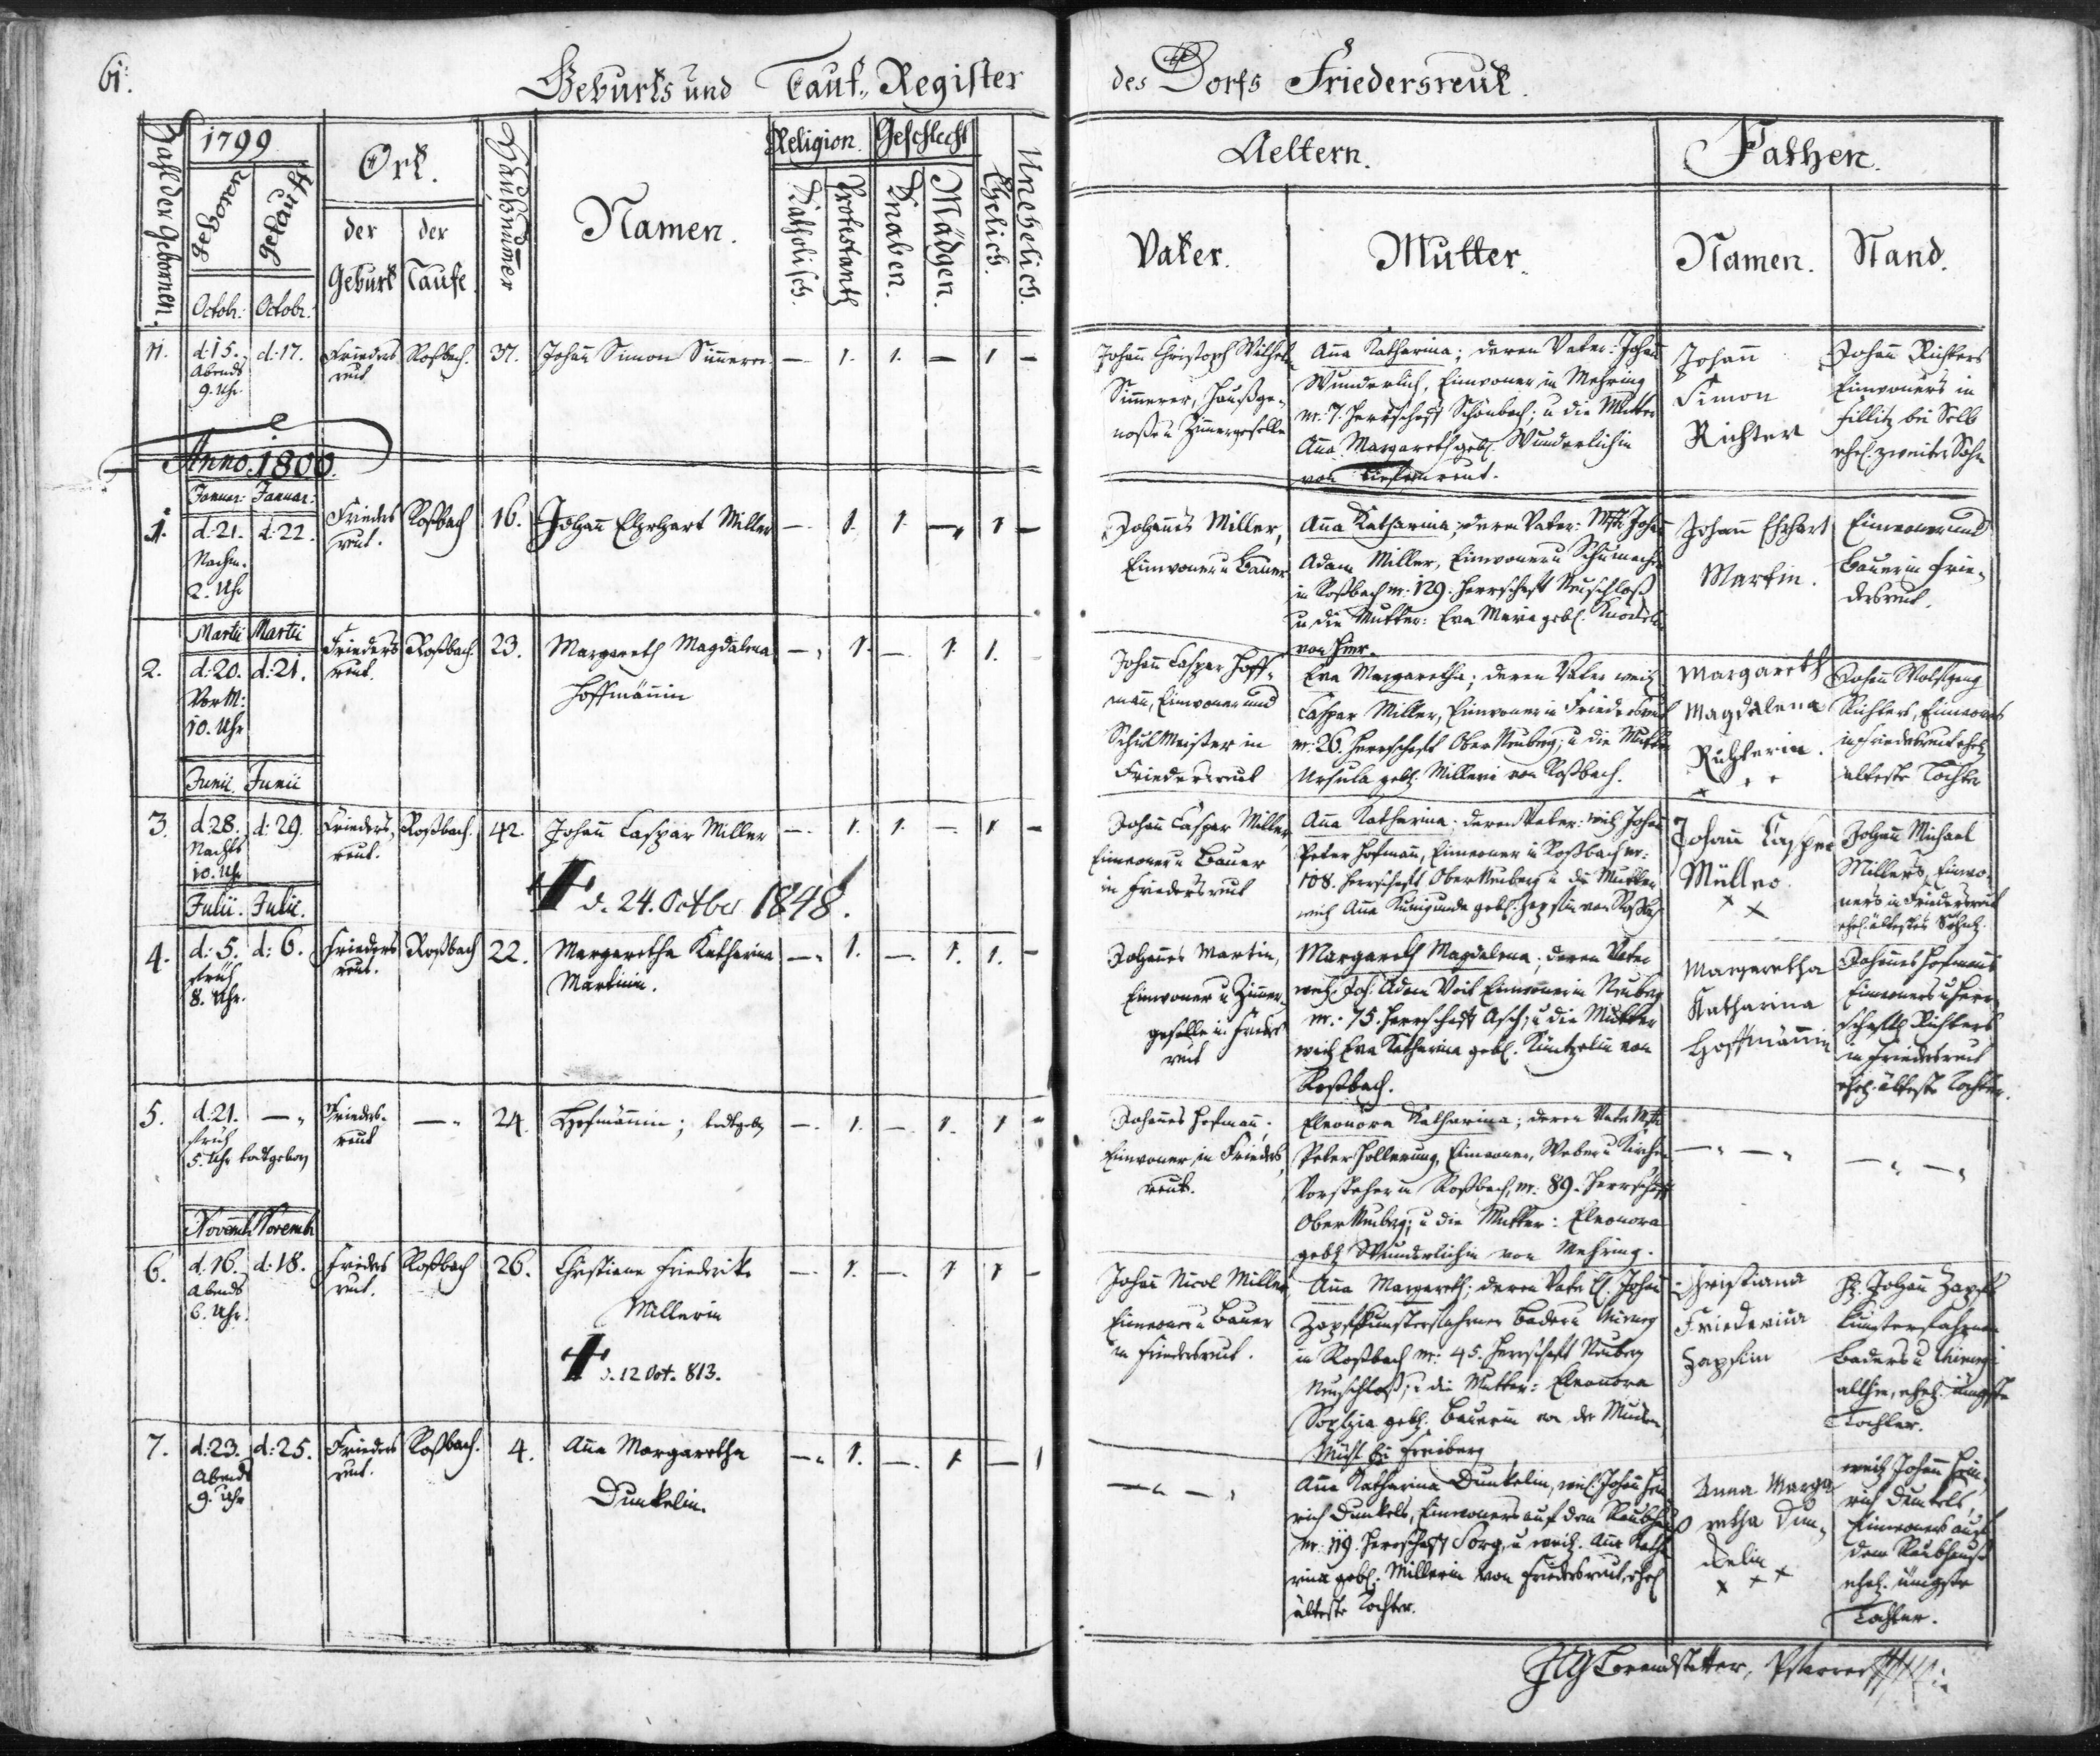 61.
Geburts und Tauf-Register
des Dorfs Friedersreut.
Zahl der Gebornen.
1799
geboren
getauft
Octobr:
Octobr:
Ort.
der Geburt
der Taufe.
Haußnumer
Namen.
Religion.
Katholisch.
Protestantisch
Geschlecht
Knaben.
Mädgen.
Ehelich.
Unehelich.
Aeltern.
Vater.
Mutter.
Pathen.
Namen.
Stand.
11.
d: 15.
Abends
9. Uhr
d: 17.
Frieders
reut
Roßbach.
37.
Johann Simon Simerer
— 1. 1. — 1 —
Johann Christoph Wilhelm
Simerer, Haußge-
noße u Zimergeselle
Anna Katharina; deren Vater: Johann
Wunderlich, Einwoner in Mehring
nr: 7. Herrschaft Schönbach; u die Mutter
Anna Margareth gebl. Wunderlichin
von
Johann
Simon
Richter
Johann Richters
Einwoners in
bei Selb
ehel. zweiter Sohn
Anno. 1800.
Januar: Januar:
1.
d: 21.
Nachm.
2. Uhr
d: 22.
Frieders
reut.
Roßbach
16.
Johann Ehrhart Miller
— 1. 1. — 1 —
Johannes Miller,
Einwoner u Bauer
Anna Katharina; deren Vater: Mstr Johann
Adam Miller, Einwoner u Schumacher
in Roßbach nr. 129. Herrschaft Neuschloß
u die Mutter: Eva Maria gebl.
von hier.
Johann Ehrhart
Martin.
Einwoner und
Bauer in Frie-
dersreut.
Martii Martii
2.
d: 20.
Vor M:
10. Uhr
d: 21.
Frieders
reut.
Roßbach.
23.
Margareth Magdalena
Hoffmännin
— 1. — 1. 1. —
Johann Caspar Hoff-
mann, Einwoner und
Schul Meister in
Friedersreut
Eva Margaretha; deren Vater weil.
Caspar Miller, Einwoner in Friedersreut
nr: 26. Herrschaft Ober Neuberg; u die Mutter
Ursula gebl. Millerin von Roßbach.
Margareth
Magdalena
Richterin.
Johann Wolfgang
Richters, Einwoners
in Friedersreut ehel.
älteste Tochter
Junii. Junii
3.
d: 28.
Nachts
10. Uhr
d: 29.
Frieders
reut.
Roßbach.
42.
Johann Caspar Miller
d. 24. Octber 1848.
— 1. 1. — 1 —
Johann Caspar Miller
Einwoner u Bauer
in Friedersreut
Anna Katharina: deren Vater: weil. Johann
Peter Hofmann, Einwoner in Roßbach nr:
108. Herrschaft Ober Neuberg u die Mutter
weil. Anna Kunigunda gebl. Zapfin von Roßbach
Johann Casper
Müller
x x
Johann Michael
Millers, Einwo-
ners in Friedersreut
ehel. ältester Sohn.
Julii. Julii.
4.
d: 5.
früh
8. Uhr.
d: 6.
Frieders
reut.
Roßbach
22.
Margaretha Katharina
Martinin.
— 1. — 1. 1. —
Johannes Martin,
Einwoner u Zimer-
geselle in Frieders
reut
Margareth Magdalena; deren Vater
weil. Joh. Adam Voit Einwoner in Neuberg
nr: 75. Herrschaft Asch; u die Mutter
weil. Eva Katharina gebl. Künzelin von
Roßbach.
Margaretha
Katharina
Hoffmännin
Johannes Hofmanns
Einwoners u Herr-
schaftl. Richters
in Friedersreut
ehel. älteste Tochter.
5.
d: 21.
früh
5. Uhr todtgeborn
—
Frieders-
reut
—
24.
Hofmännin; todtgebn
— 1. — 1. 1 —
Johannes Hofmann,
Einwoner in Frieders
reut.
Eleonora Katharina; deren Vater Mstr
Peter Hollerung, Einwoner, Weber u Kirchen
Vorsteher in Roßbach, nr: 89. Herrschaft
Ober Neuberg; u die Mutter: Eleonora
gebl. Wunderlichin von Mehring.
— —
— —
Novemb. Novemb.
6.
d. 16.
Abends
6. Uhr.
d: 18.
Frieders
reut.
Roßbach
26.
Christiane Friederike
Millerin
d. 12 Oct. 813.
— 1. — 1 1 —
Johann Nicol Miller
Einwoner u Bauer
in Friedersreut.
Anna Margareth; deren Vater H. Johann
Zapf Kunsterfahrner Bader u Chirurg
in Roßbach nr: 45. Herrschaft Neuberg
Neuschloß; u die Mutter: Eleonora
Sophia gebl. Bauerin von der
Mühl bei Freiberg
Christiana
Friederica
Zapfin
H. Johann Zapfs
Kunsterfahrnen
Baders u Chirurgi
allhier, ehel. jüngste
Tochter.
7.
d: 23.
Abends
9. Uhr
d: 25.
Frieders
reut.
Roßbach.
4.
Anna Margaretha
Dunkelin.
— 1. — 1. — 1
— —
Anna Katharina Dunkelin, weil. Johann Hein
rich Dunkels, Einwoners auf dem Raubhauß
nr: 119. Herrschaft Sorg, u weil. Anna Katha
rina gebl. Millerin von Friedersreut, ehel
älteste Tochter.
Anna Marga
retha Dun-
kelin
x x x
weil. Johann Hein-
rich Dunkels,
Einwoners auf
dem Raubhauß
ehel. jüngste
Tochter.
Brandstetter, Pfarrer